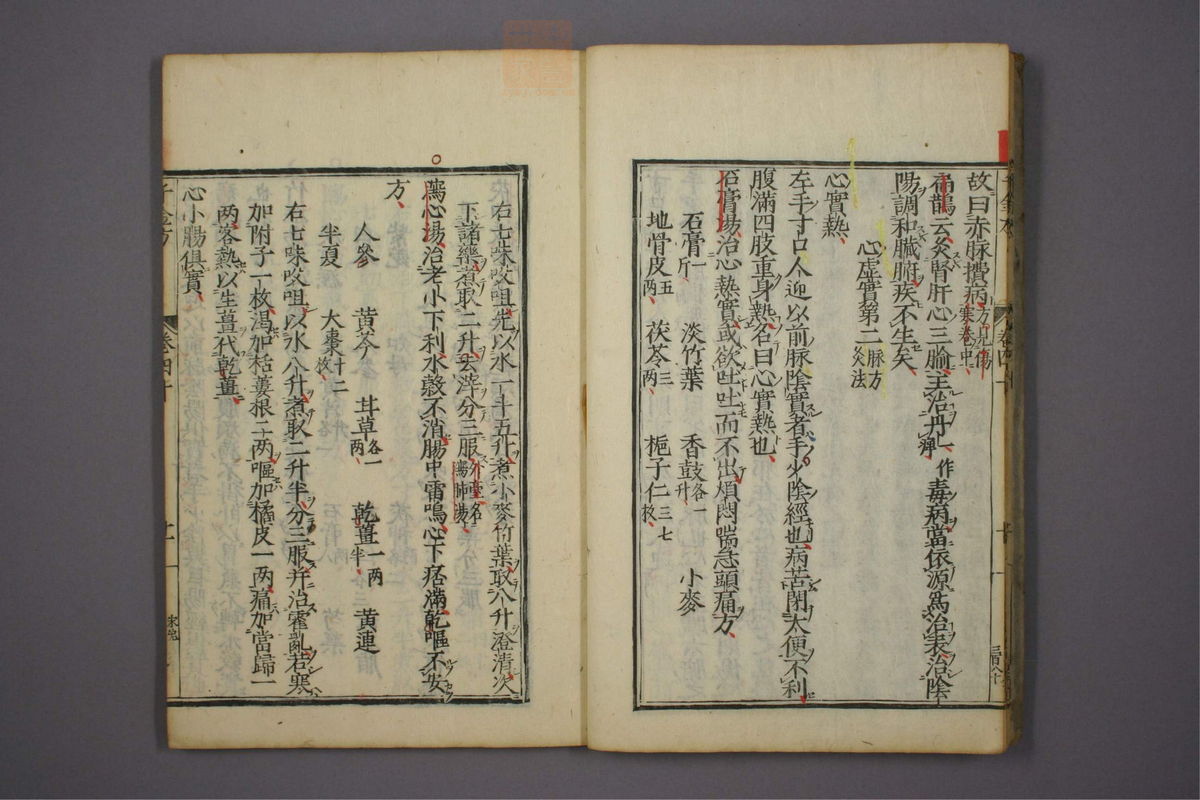 故曰赤脉攢病方見傷寒卷中
扁鵲云灸腎肝心三腧主治丹一作痹毒病當依源爲治表治陰
陽調和臟腑疾不生矣
心虛實第二脉方灸法
心實熱
左手寸口人迎以前脉陰實者手少陰經也病苦閉大便不利
腹滿四肢重身熱名曰心實熱也
石膏湯治心熱實或欲吐吐而不出煩悶喘急頭痛方
石膏一斤 淡竹葉 香豉各一升 小麥
地骨皮五兩 茯苓三兩 梔子仁三七枚
右七味㕮咀先以水一十五升煮小麥竹葉取八升澄清次
下諸藥煮取二升去滓分三服外臺名瀉肺湯
瀉心湯治老小下利水穀不消腸中雷鳴心下痞滿乾嘔不安
方
人參 黃芩 甘草各一兩 乾薑一兩半 黃連
半夏 大棗十二枚
右七味㕮咀以水八升煮取二升半分三服并治霍亂若寒
加附子一枚渴加栝蔞根二兩嘔加橘皮一兩痛加當歸一
兩客熱以生薑代乾薑
心小腸俱實
卷四十
十一